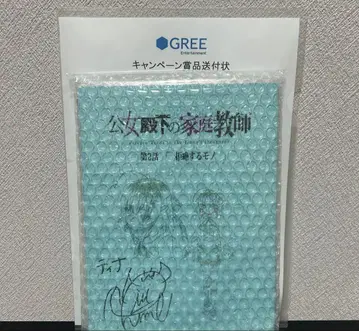 GREE
Entertainment
キャンペーン賞品送付状
公女殿下の家庭教師
第2話 / 拒絶するモノ
ティナ